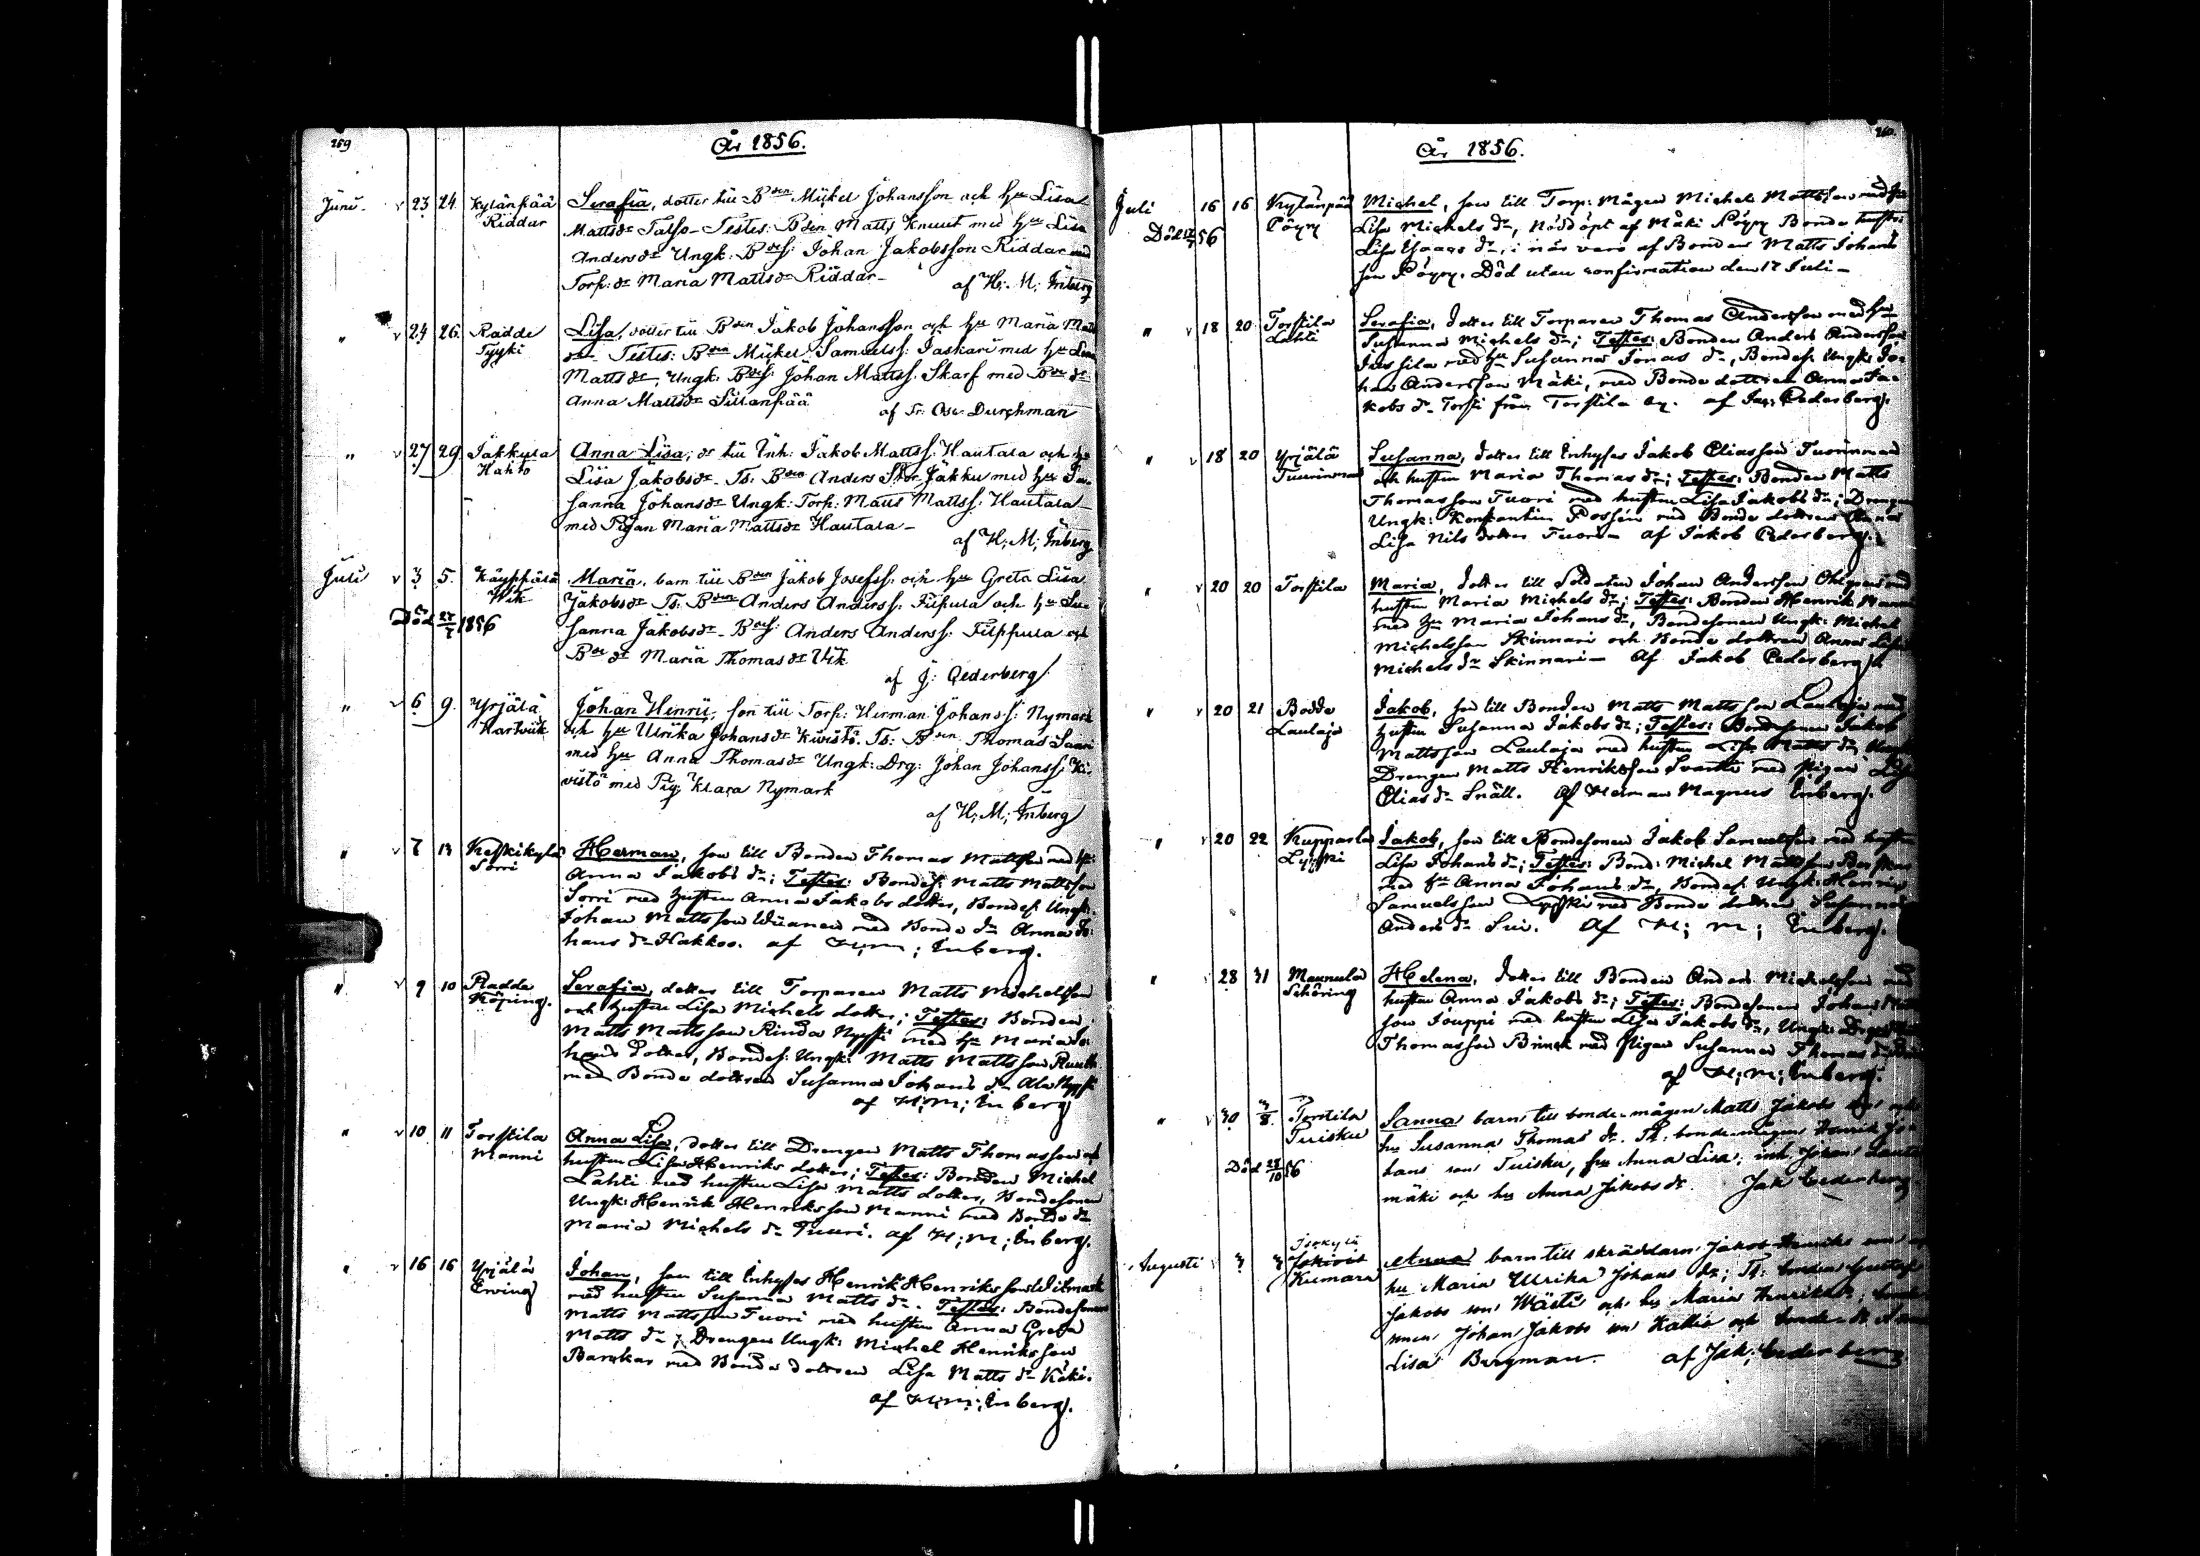 259
År 1856.
Juni 23 24. Kylänpää Riddar
Serafia, dotter till Bden Mickel Johansson och hu Lisa
Mattsdr Talso - Testes: Bden Matts Knuut med hu Lisa
Andersdr Ungk: Bdes: Johan Jakobsson Riddar med
Torp: dr Maria Mattsdr Riddar - af H: M: Inberg
" 24 26. Radde Tyyki
Lisa, dotter till Bden Jakob Johansson och hu Maria Matts
dr Testes: Bden Mickel Samuelss: Jaskari med hu Lena
Mattsdr, Ungk: Bdes: Johan Mattss. Skarf med Bde dr
Anna Mattsdr Sillanpää af Fr: Osc. Durchman
" 27 29 Jakkula Hahto
Anna Lisa, dr till Inh: Jakob Mattss: Hautala och hu
Lisa Jakobsdr - Ts: Bden Anders Stor Jakku med hu Su-
sanna Johansdr Ungk: Torp: Matts Mattss: Hautala -
med Pigan Maria Mattsdr Hautala -
af H: M: Inberg
Juli 3 5. Käyppälä Wik
Död 27/7 1856
Maria, barn till Bden Jakob Josefss: och hu Greta Lisa
Jakobsdr Ts: Bden Anders Anderss: Filpula och hu Su-
sanna Jakobsdr - Bdes: Anders Anderss: Filppula och
Bde dr Maria Thomasdr Wik
af J: Cederberg/.
" 6 9. Yrjälä Hartwiik
Johan Henrik, son till Torp: Herman Johanss: Nymark
och hu Ulrika Johansdr Kivistö. Ts: Bden Thomas Saari
med hu Anna Thomasdr Ungk: Drg: Johan Johanss: Ki-
vistö med Pig: Klara Nymark
af H: M: Inberg
" 7 13 Keskikylä Sorri
Herman, son till Bonden Thomas Mattsson med hu:
Anna Jakobs dr; Testes: Bondes: Matts Mattsson
Sorri med hustun Anna Jakobs dotter, Bondes Ungk:
Johan Mattsson Wiianen med Bonde dr Anna Jo-
hans dr Hakkos. af H; M; Inberg.
" 9 10 Radde Köping.
Serafia, dotter till Torparen Matts Michelsson
och hustrun Lisa Michels dotter; Testes: Bonden
Matts Mattsson Rinda Nyssti med hu Maria Jo-
hans dotter, Bondes: Ungk: Matts Mattsson
med Bonde dottren Susanna Johans dr Ala
af H; M; Inberg
" 10 11 Torstila Manni
Anna Lisa, dotter till Drengen Matts Thomasson och
hustun Lisa Henriks dotter; Testes: Bonden Michel
Lahti med hustun Lisa Matts dotter, Bondesonen
Ungk: Henrik Henriksson Manni med Bonde dr
Maria Michels dr Tuuri. af H; M; Inberg.
" 16 16 Yrjälä Erwing
Johan, son till Inhyses Henrik Henriksson
med hustun Susanna Matts dr. Testes: Bondesonen
Matts Mattsson Tuori med hustun Anna Greta
Matts dr; Drengen Ungk: Michel Henriksson
Barckar med Bonde dottren Lisa Matts dr Käki.
af H; M; Inberg.
260.
År 1856.
Juli 16 16 Kylänpää Pöyry
Död 17/7 56
Michel, son till Torp: Mågen Michel Mattsson med hu
Lisa Michels dr, Nöddöpt af Mäki Pöyry Bonde hustru
Lisa Isaacs dr, i när varo af Bonden Matts Johans
son Pöyry. Död utan confirmation den 17 Juli -
" 18 20 Torstila Lahti
Serafia, dotter till Torparen Thomas Andersson med hu
Susanna Michels dr; Testes: Bonden Anders Andersson
Jussila med hu Susanna Jonas dr, Bondes: Ungk: Jo-
han Andersson Mäki, med Bonde dottren Anna Ja-
kobs dr Torsti från Torstila by. af Jac: Cederberg.
" 18 20 Yrjälä Tuurinmaa
Susanna, dotter till Inhyses Jakob Eliasson
och hustun Maria Thomas dr; Testes: Bonden Matts
Thomasson Tuori med hustun Lisa Jakobs dr; Drengen
Ungk: Konstantin Possén med Bonde dottren Anna
Lisa Nils dotter Tuori - af Jakob Cederberg.
" 20 20 Torstila
Maria, dotter till Soldaten Johan Andersson Ohlgren med
hustun Maria Michels dr; Testes: Bonden Henrik Manni
med hu Maria Johans dr, Bondesonen Ungk: Michel
Michelsson Skinnari och Bonde dottren Anna Lisa
Michels dr Skinnari - Af Jakob Cederberg.
" 20 21 Bodde Laulaja
Jakob, son till Bonden Matts Mattsson Laulaja med
hustun Susanna Jakobs dr; Testes: Bondesonen Jakob
Mattsson Laulaja med hustun Lisa Matts dr Ungk
Drengen Matts Henriksson Svartti med pigan Lisa
Elias dr Snäll. Af Herman Magnus Inberg.
" 20 22 Kupparla Lyyski
Jakob, son till Bondesonen Jakob Samuelsson med hustun
Lisa Johans dr; Testes: Bond: Michel Mattsson
med hu Anna Johans dr, Bondes: Ungk: Henrik
Samuelsson Lyyski med Bonde dottren Susanna
Anders dr Sui. Af H; M; Inberg.
" 28 31 Maunula Schöring
Helena, dotter till Bonden Anders Michelsson med
hustun Anna Jakobs dr; Testes: Bondesonen Johan
son Jouppi med hustun Lisa Jakobs dr, Ungk: Drgen
Thomasson Brinck med Pigan Susanna Thomas
af H; M; Inberg.
" 30 3/8 Torstila Tuisku
Död 28/10 56
Sanna barn till bonde-mågen Matts Jakobs son och
hu Susanna Thomas dr. Tt: bonde-mågen Henrik Jo-
hans son Tuisku, hu Anna Lisa; inh. Johan
mäki och hu Anna Jakobs dr. Jak Cederberg.
Augusti 3 3 Isokylä Kumara
Anna barn till skräddarn Jakob Henriks son och
hu Maria Ulrika Johans dr; Tt: bonden Gustaf
Jakobs son Wästi och hu Maria Henriksdr, bonde
sonen Johan Jakobs son Kallia och bonde-dr Anna
Lisa Bergman. af Jak: Cederberg